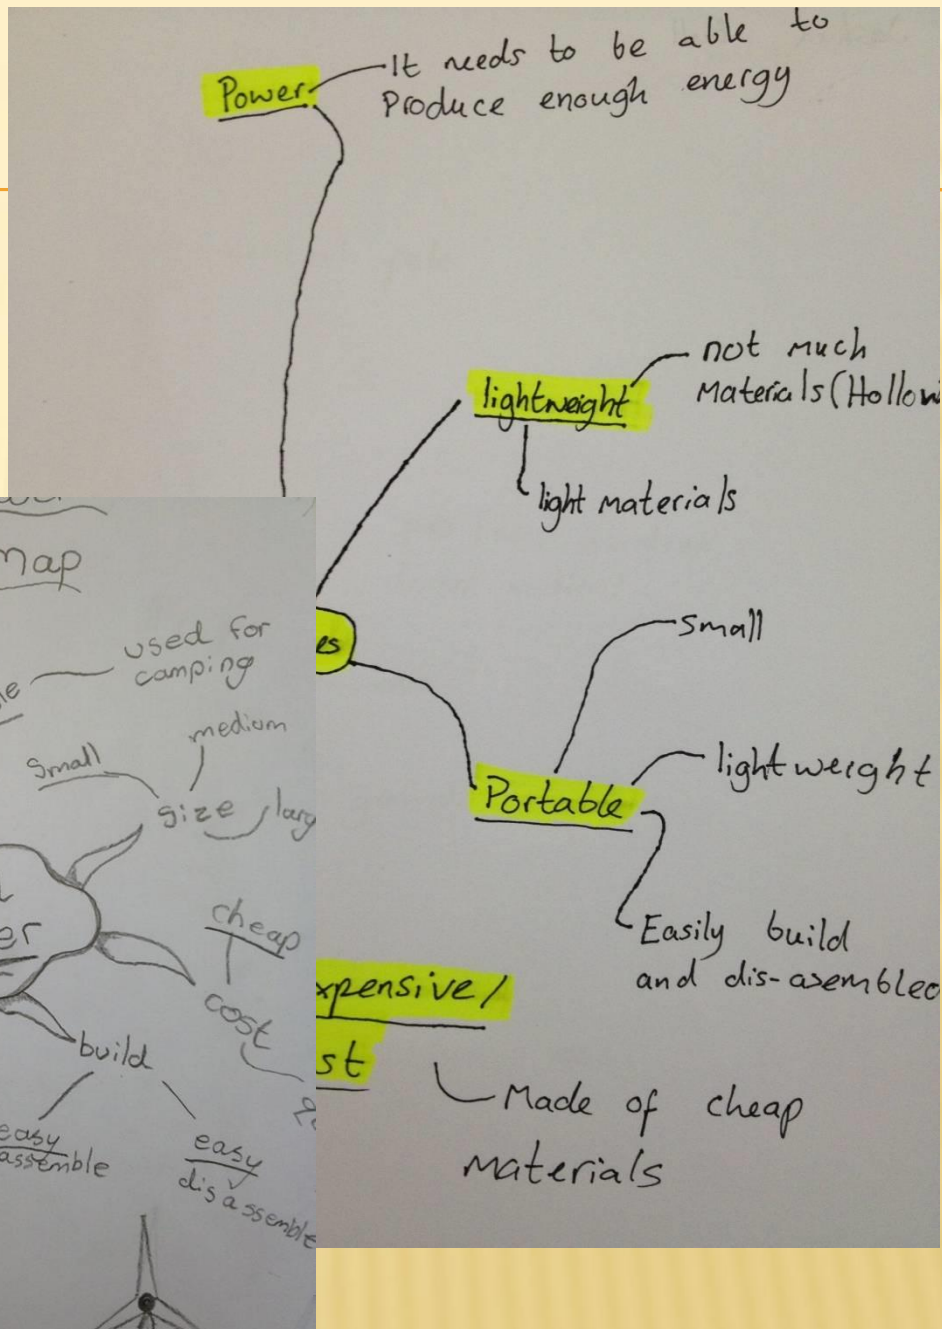 Power
It needs to be able to
Produce enough energy
lightweight
not much
Materials (Hollow
light materials
es
Small
Portable
lightweight
Easily build
and dis-asembled
xpensive/
st
Made of cheap
materials
map
used for
camping
le
medium
Small
size
larg
er
cheap
cost
build
easy
assemble
easy
disassemble